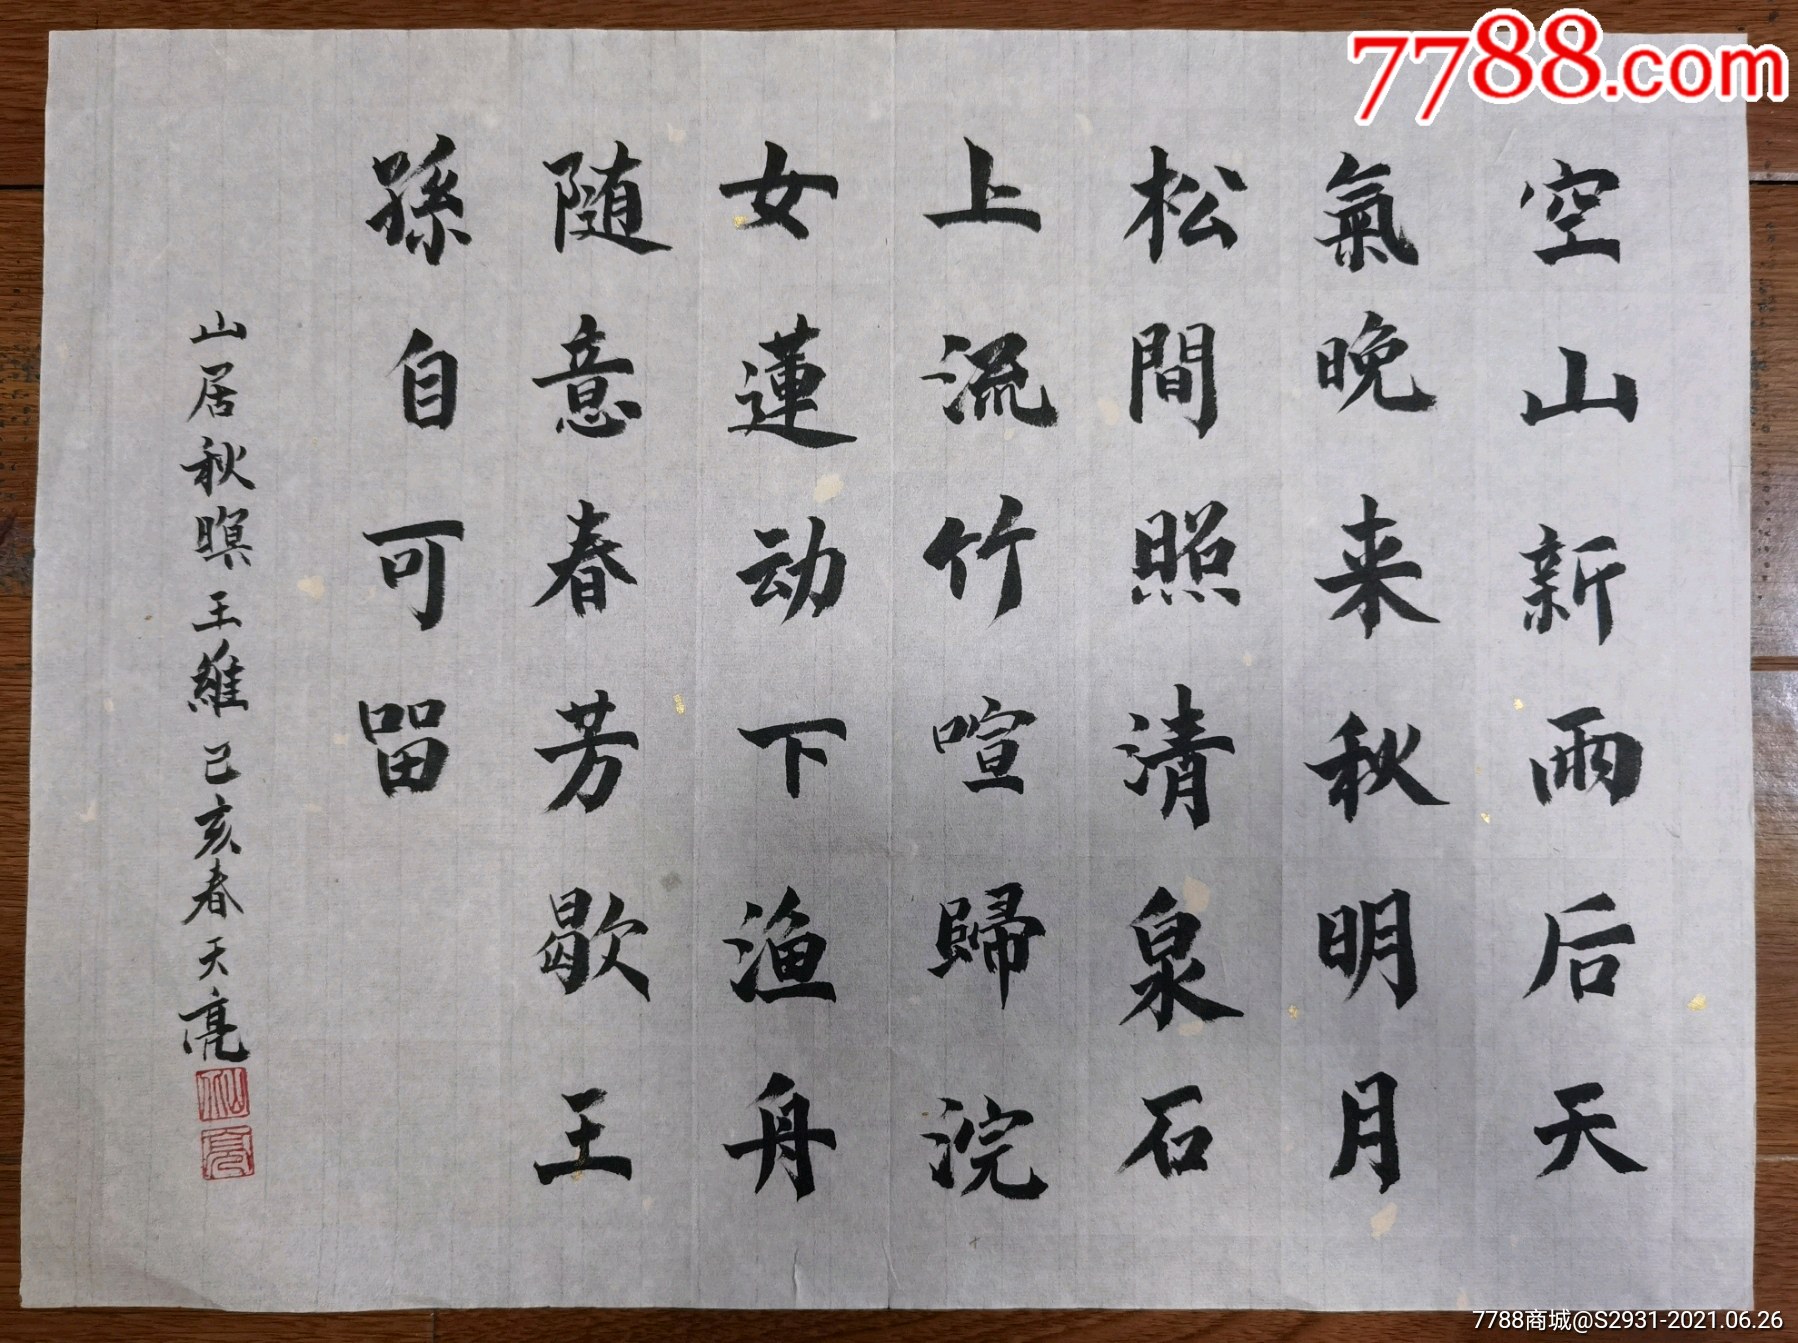 空山新雨后天
氣晚来秋明月
松間照清泉石
上流竹喧歸浣
女蓮动下渔舟
随意春芳歇王
孫自可留
山居秋暝王維己亥春天亮
7788.com
7788商城@S2931-2021.06.26